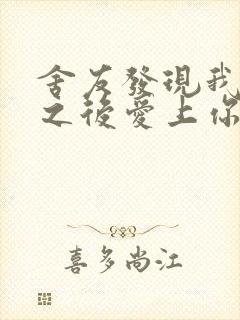 舍友發現我
之後愛上你
喜多尚江